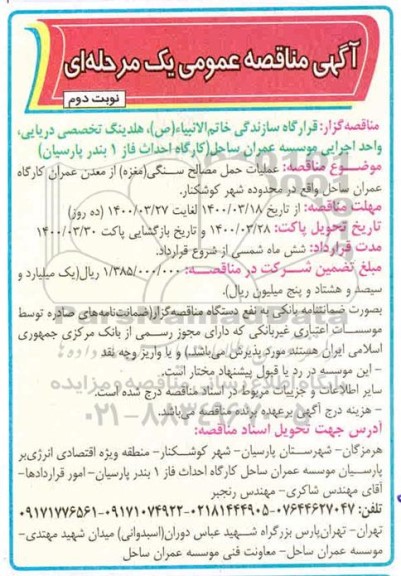 آگهی مناقصه عمومی یک مرحله‌ای
نوبت دوم
مناقصه‌گزار: قرارگاه سازندگی خاتم‌الانبیاء(ص)، هلدینگ تخصصی دریایی،
واحد اجرایی موسسه عمران ساحل(کارگاه احداث فاز ۱ بندر پارسیان)
موضوع مناقصه: عملیات حمل مصالح سنگی(مغزه) از معدن عمران کارگاه
عمران ساحل واقع در محدوده شهر کوشکنار.
مهلت مناقصه: از تاریخ ۱۴۰۰/۰۳/۱۸ لغایت ۱۴۰۰/۰۳/۲۷ (ده روز)
تاریخ تحویل پاکت: ۱۴۰۰/۰۳/۲۸ و تاریخ بازگشایی پاکت ۱۴۰۰/۰۳/۳۰
مدت قرارداد: شش ماه شمسی از شروع قرارداد.
مبلغ تضمین شرکت در مناقصه: ۱/۳۸۵/۰۰۰/۰۰۰ ریال(یک میلیارد و
سیصد و هشتاد و پنج میلیون ریال).
بصورت ضمانتنامه بانکی به نفع دستگاه مناقصه‌گزار(ضمانت‌نامه‌های صادره توسط
موسسات اعتباری غیربانکی که دارای مجوز رسمی از بانک مرکزی جمهوری
اسلامی ایران هستند مورد پذیرش می‌باشد.) و یا واریز وجه نقد
- این موسسه در رد یا قبول پیشنهاد مختار است.
سایر اطلاعات و جزییات مربوط در اسناد مناقصه درج شده است.
- هزینه درج آگهی برعهده برنده مناقصه می‌باشد.
۰۲۱-۸۸۳۴۹۶۷۰-۵
آدرس جهت تحویل اسناد مناقصه:
هرمزگان- شهرستان پارسیان- شهر کوشکنار- منطقه ویژه اقتصادی انرژی‌بر
پارسیان موسسه عمران ساحل کارگاه احداث فاز ۱ بندر پارسیان- امور قراردادها-
آقای مهندس شاکری- مهندس رنجبر
تلفن: ۰۷۶۴۴۶۲۷۰۴۷-۰۲۱۸۱۴۴۴۹۰۵-۰۹۱۷۱۰۷۴۹۲۲-۰۹۱۷۱۷۷۶۵۶۱
تهران- تهران‌پارس بزرگراه شهید عباس دوران(اسبدوانی) میدان شهید مهتدی-
موسسه عمران ساحل- معاونت فنی موسسه عمران ساحل